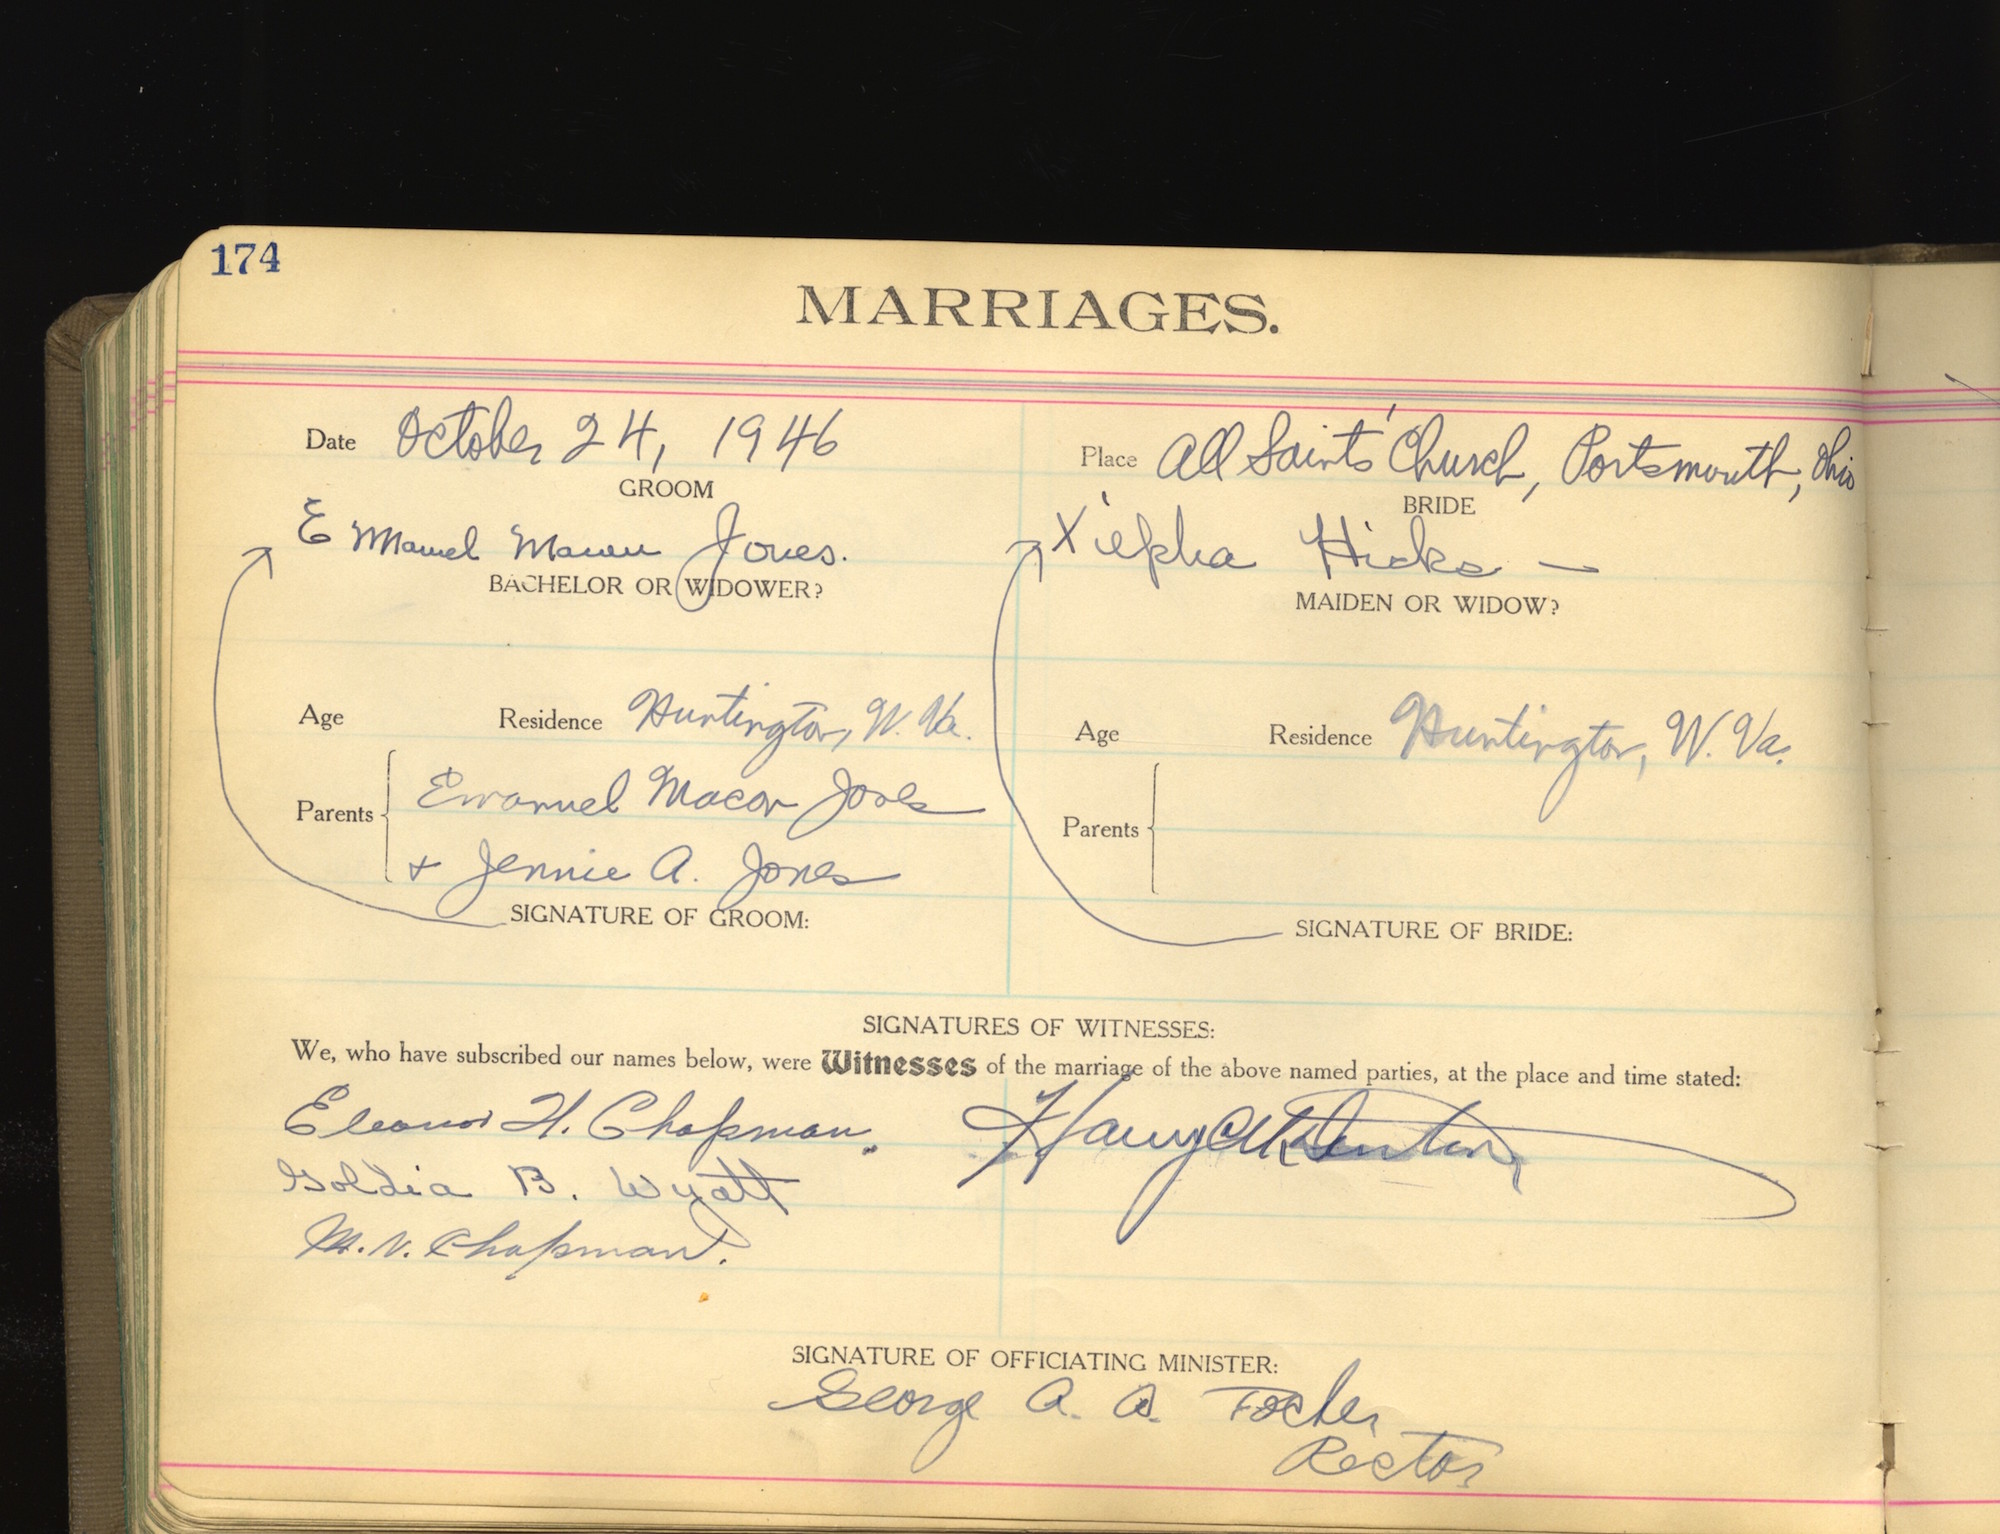 174
MARRIAGES.
Date October 24, 1946
Place All Saints' Church, Portsmouth, Ohio
GROOM
BRIDE
E Manuel Macon Jones.
Xiepha Hicks —
BACHELOR OR WIDOWER?
MAIDEN OR WIDOW?
Age Residence Huntington, W. Va.
Age Residence Huntington, W. Va.
Parents Emanuel Macon Jones
+ Jennie A. Jones
Parents
SIGNATURE OF GROOM:
SIGNATURE OF BRIDE:
SIGNATURES OF WITNESSES:
We, who have subscribed our names below, were Witnesses of the marriage of the above named parties, at the place and time stated:
Eleanor H. Chapman.
Harry
Goldia B. Wyatt
M. V. Chapman.
SIGNATURE OF OFFICIATING MINISTER:
George A. A. Tocher
Rector